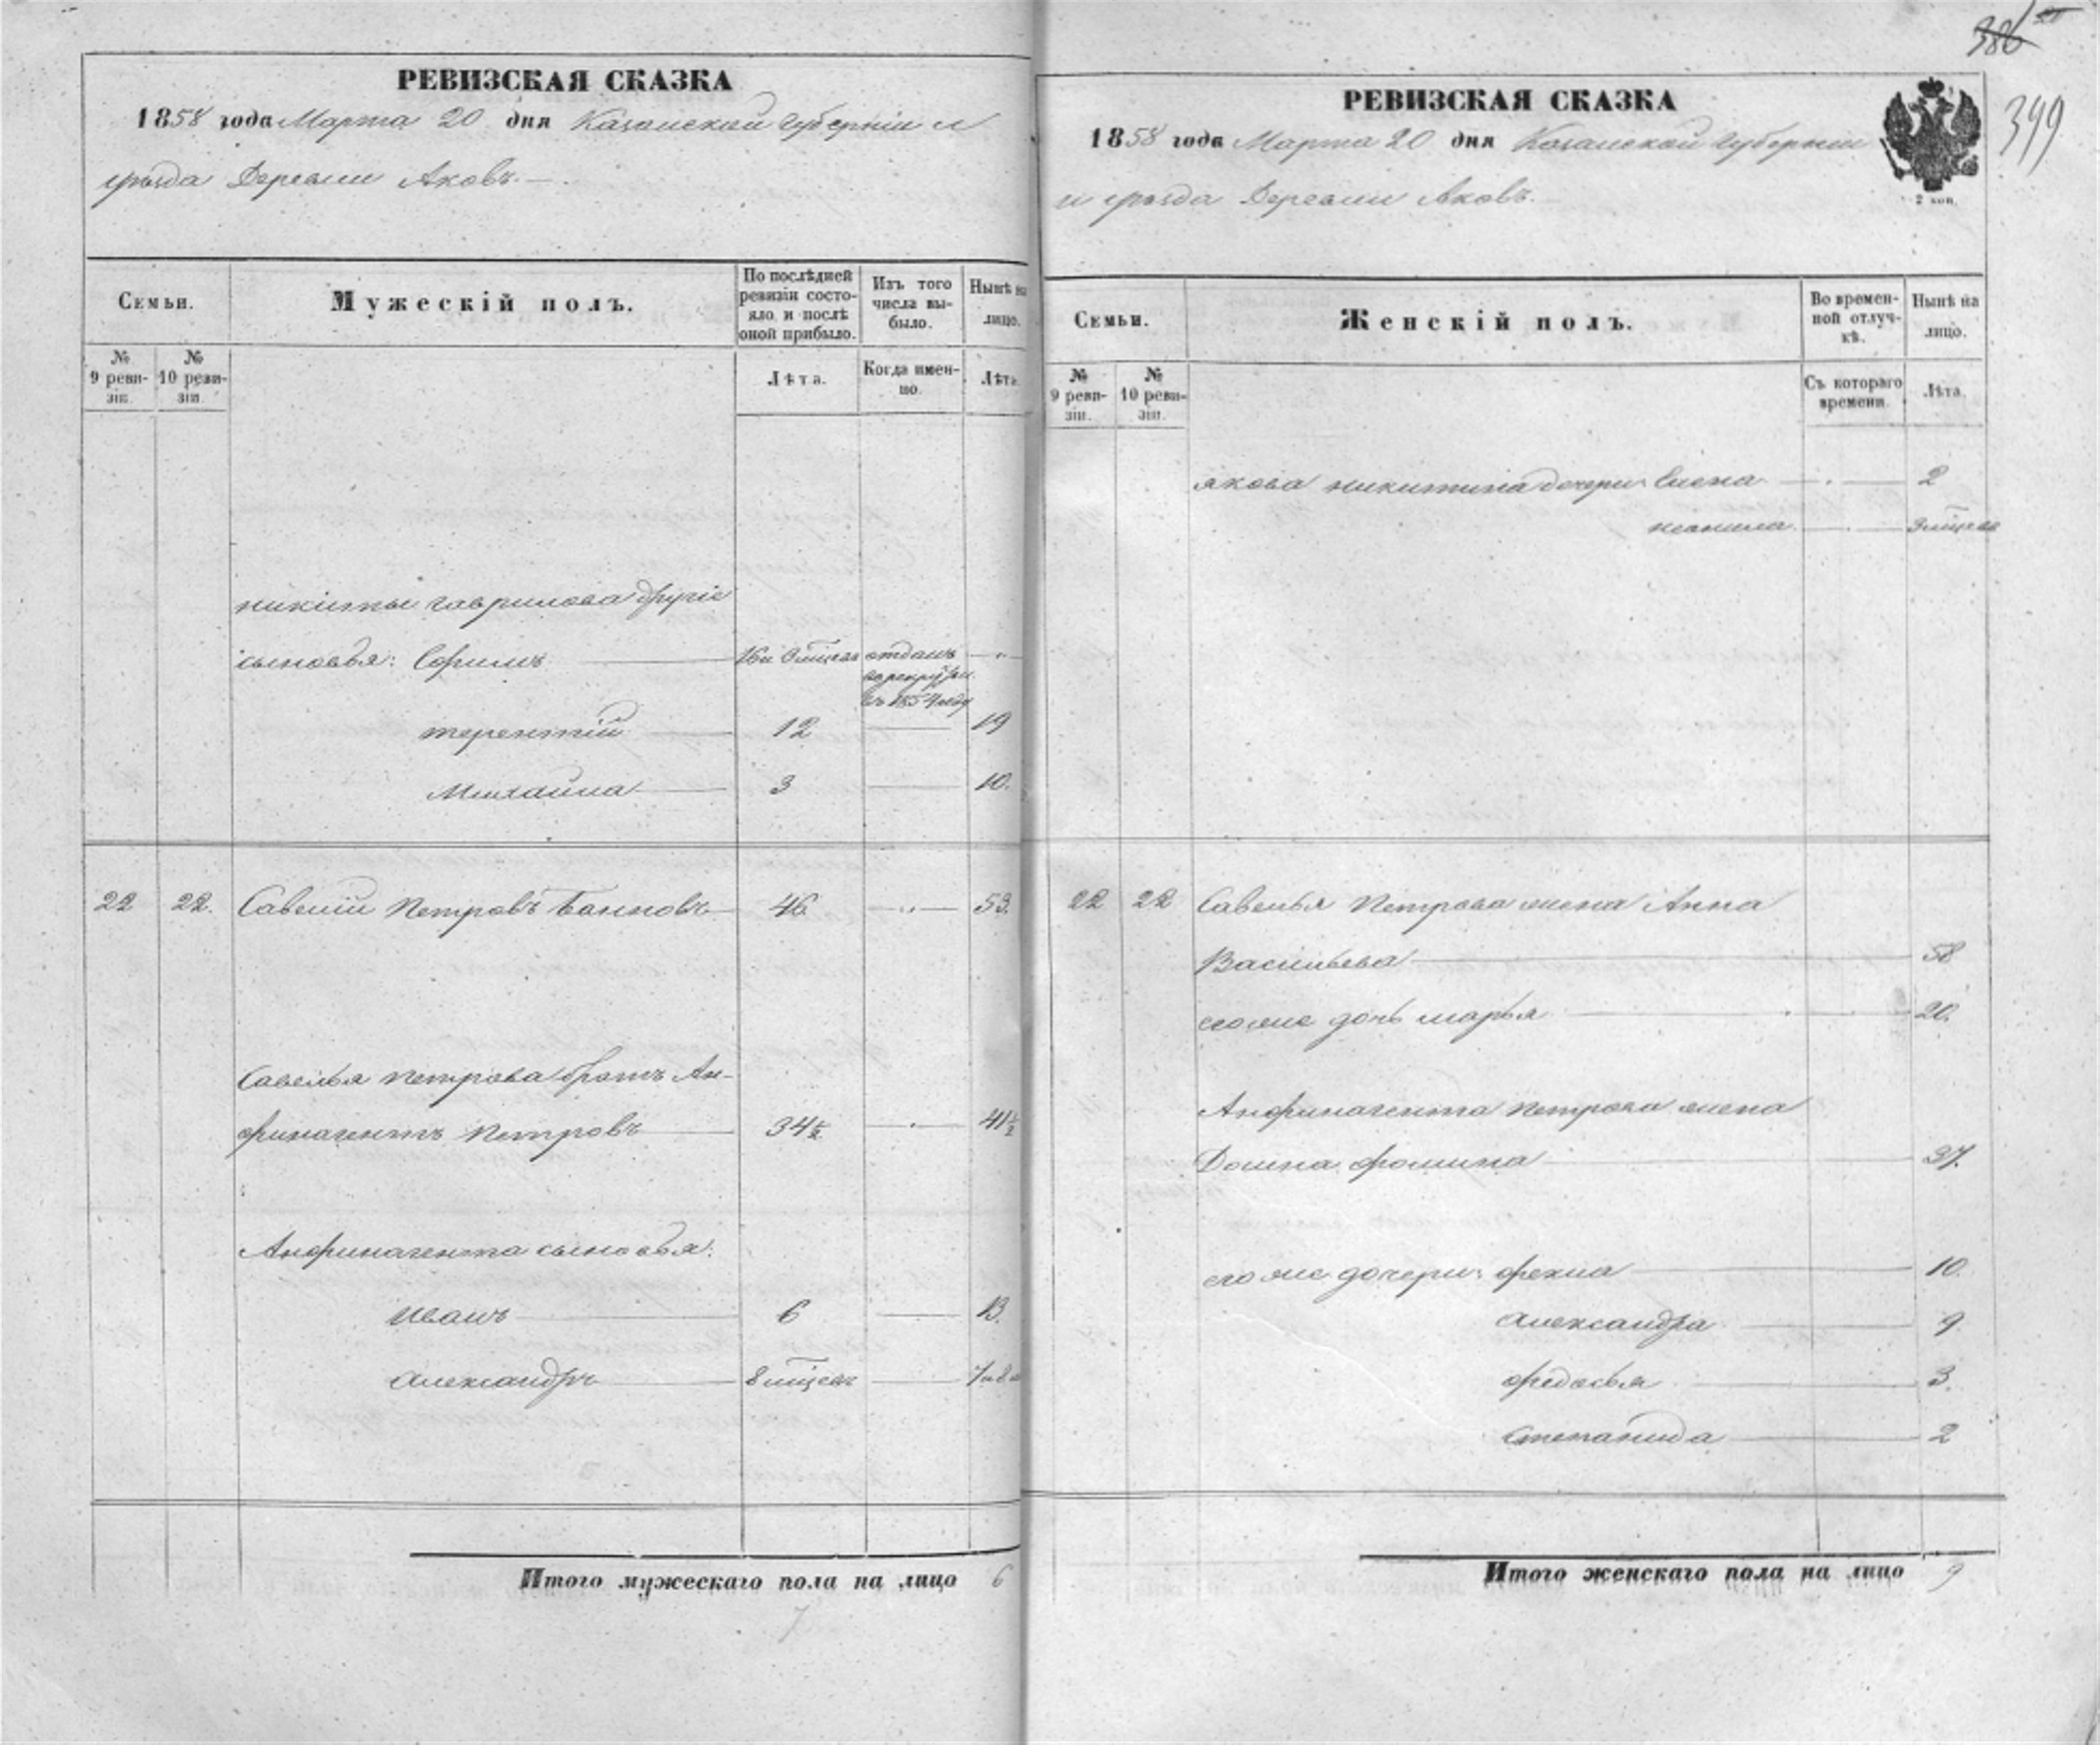 РЕВИЗСКАЯ СКАЗКА
1858 года Марта 20 дня Казанской Губерніи и
уѣзда Деревни Аковъ.
Семьи.
Мужескій полъ.
По послѣдней ревизіи состояло и послѣ оной прибыло.
Изъ того числа выбыло.
Нынѣ на лицо.
№ 9 ревизіи.
№ 10 ревизіи.
Лѣта.
Когда именно.
Лѣта.
никиты гаврилова другіе
сыновья: Ефимъ 16и 8 мцевъ отданъ
въ рекруты
въ 1854 году
терентій 12 19
Михайла 3 10.
22 22. Савелій Петровъ 46 53.
Савелья петрова братъ Ан-
финагентъ Петровъ 34½ 41½
Анфинагента сыновья:
Иванъ 6 13.
Александръ 8 мцевъ 7 и 8 м
Итого мужескаго пола на лицо 6
7
386
399
РЕВИЗСКАЯ СКАЗКА
1858 года Марта 20 дня Казанской Губерніи
и уѣзда Деревни Аковъ.
2 коп.
Семьи.
Женскій полъ.
Во временной отлучкѣ.
Нынѣ на лицо.
№ 9 ревизіи.
№ 10 ревизіи.
Съ котораго времени.
Лѣта.
якова никитина дочери Елена 2
22 22 Савелья Петрова жена Анна
Васильева 58
его же дочь марья 20.
Анфинагента петрова жена
Домна фомина 37.
его же дочери: фекла 10.
Александра 9
федосья 3.
Степанида 2
Итого женскаго пола на лицо 9